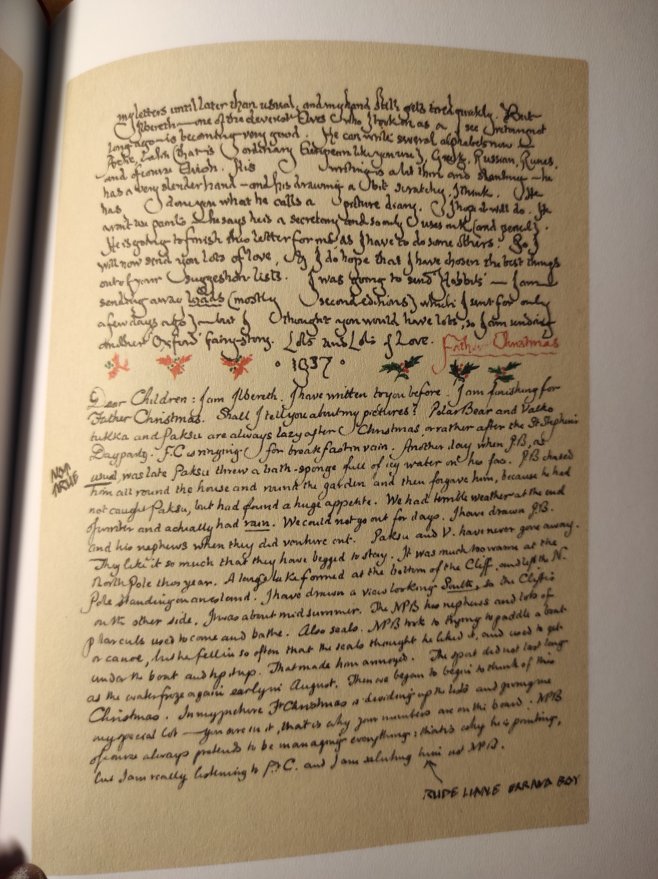 my letters until later than usual, and my hand still gets tired quickly. But
Ilbereth — one of the cleverest Elves who I took on as a secretary not
long ago — is becoming very good. He can write several alphabets now —
Arctic, Latin (that is ordinary European like you use), Greek, Russian, Runes,
and of course Elvish. His writing is a bit thin and slanting — he
has a very slender hand — and his drawing is a bit scratchy, I think. He
has done you what he calls a picture diary. I hope it will do. He
won't use paints — he says he is a secretary and so only uses ink (and pencil).
He is going to finish this letter for me as I have to do some others. So I
will now send you lots of love, & I do hope that I have chosen the best things
out of your suggestion lists. I was going to send 'Hobbits' — I am
sending away loads (mostly second editions) which I sent for only
a few days ago) — but I thought you would have lots, so I am sending
another Oxford Fairy Story. Lots and Lots of Love. Father Christmas
· 1937 ·
Dear Children: I am Ilbereth. I have written to you before. I am finishing for
Father Christmas. Shall I tell you about my pictures? Polar Bear and Valko-
tukka and Paksu are always lazy after Christmas or rather after the St Stephen's
Day party. F.C. is ringing for breakfast in vain. Another day when P.B, as
usual, was late Paksu threw a bath-sponge full of icy water on his face. P.B. chased
NOT TRUE
him all round the house and round the garden and then forgave him, because he had
not caught Paksu, but had found a huge appetite. We had terrible weather at the end
of winter and actually had rain. We could not go out for days. I have drawn P.B.
and his nephews when they did venture out. Paksu and V. have never gone away.
They like it so much that they have begged to stay. It was much too warm at the
North Pole this year. A large lake formed at the bottom of the Cliff, and left the N.
Pole standing on an island. I have drawn a view looking South, so the Cliff is
on the other side. It was about mid summer. The NPB his nephews and lots of
polar cubs used to come and bathe. Also seals. NPB took to trying to paddle a boat
or canoe, but he fell in so often that the seals thought he liked it, and used to get
under the boat and tip it up. That made him annoyed. The sport did not last long
as the water froze again early in August. Then we began to begin to think of this
Christmas. In my picture Fr Christmas is dividing up the lists and giving me
my special lot — you are in it, that is why your numbers are on the board. NPB
of course always pretends to be managing everything: that is why he is pointing,
but I am really listening to F.C. and I am saluting him not NPB.
RUDE LITTLE ERRAND BOY